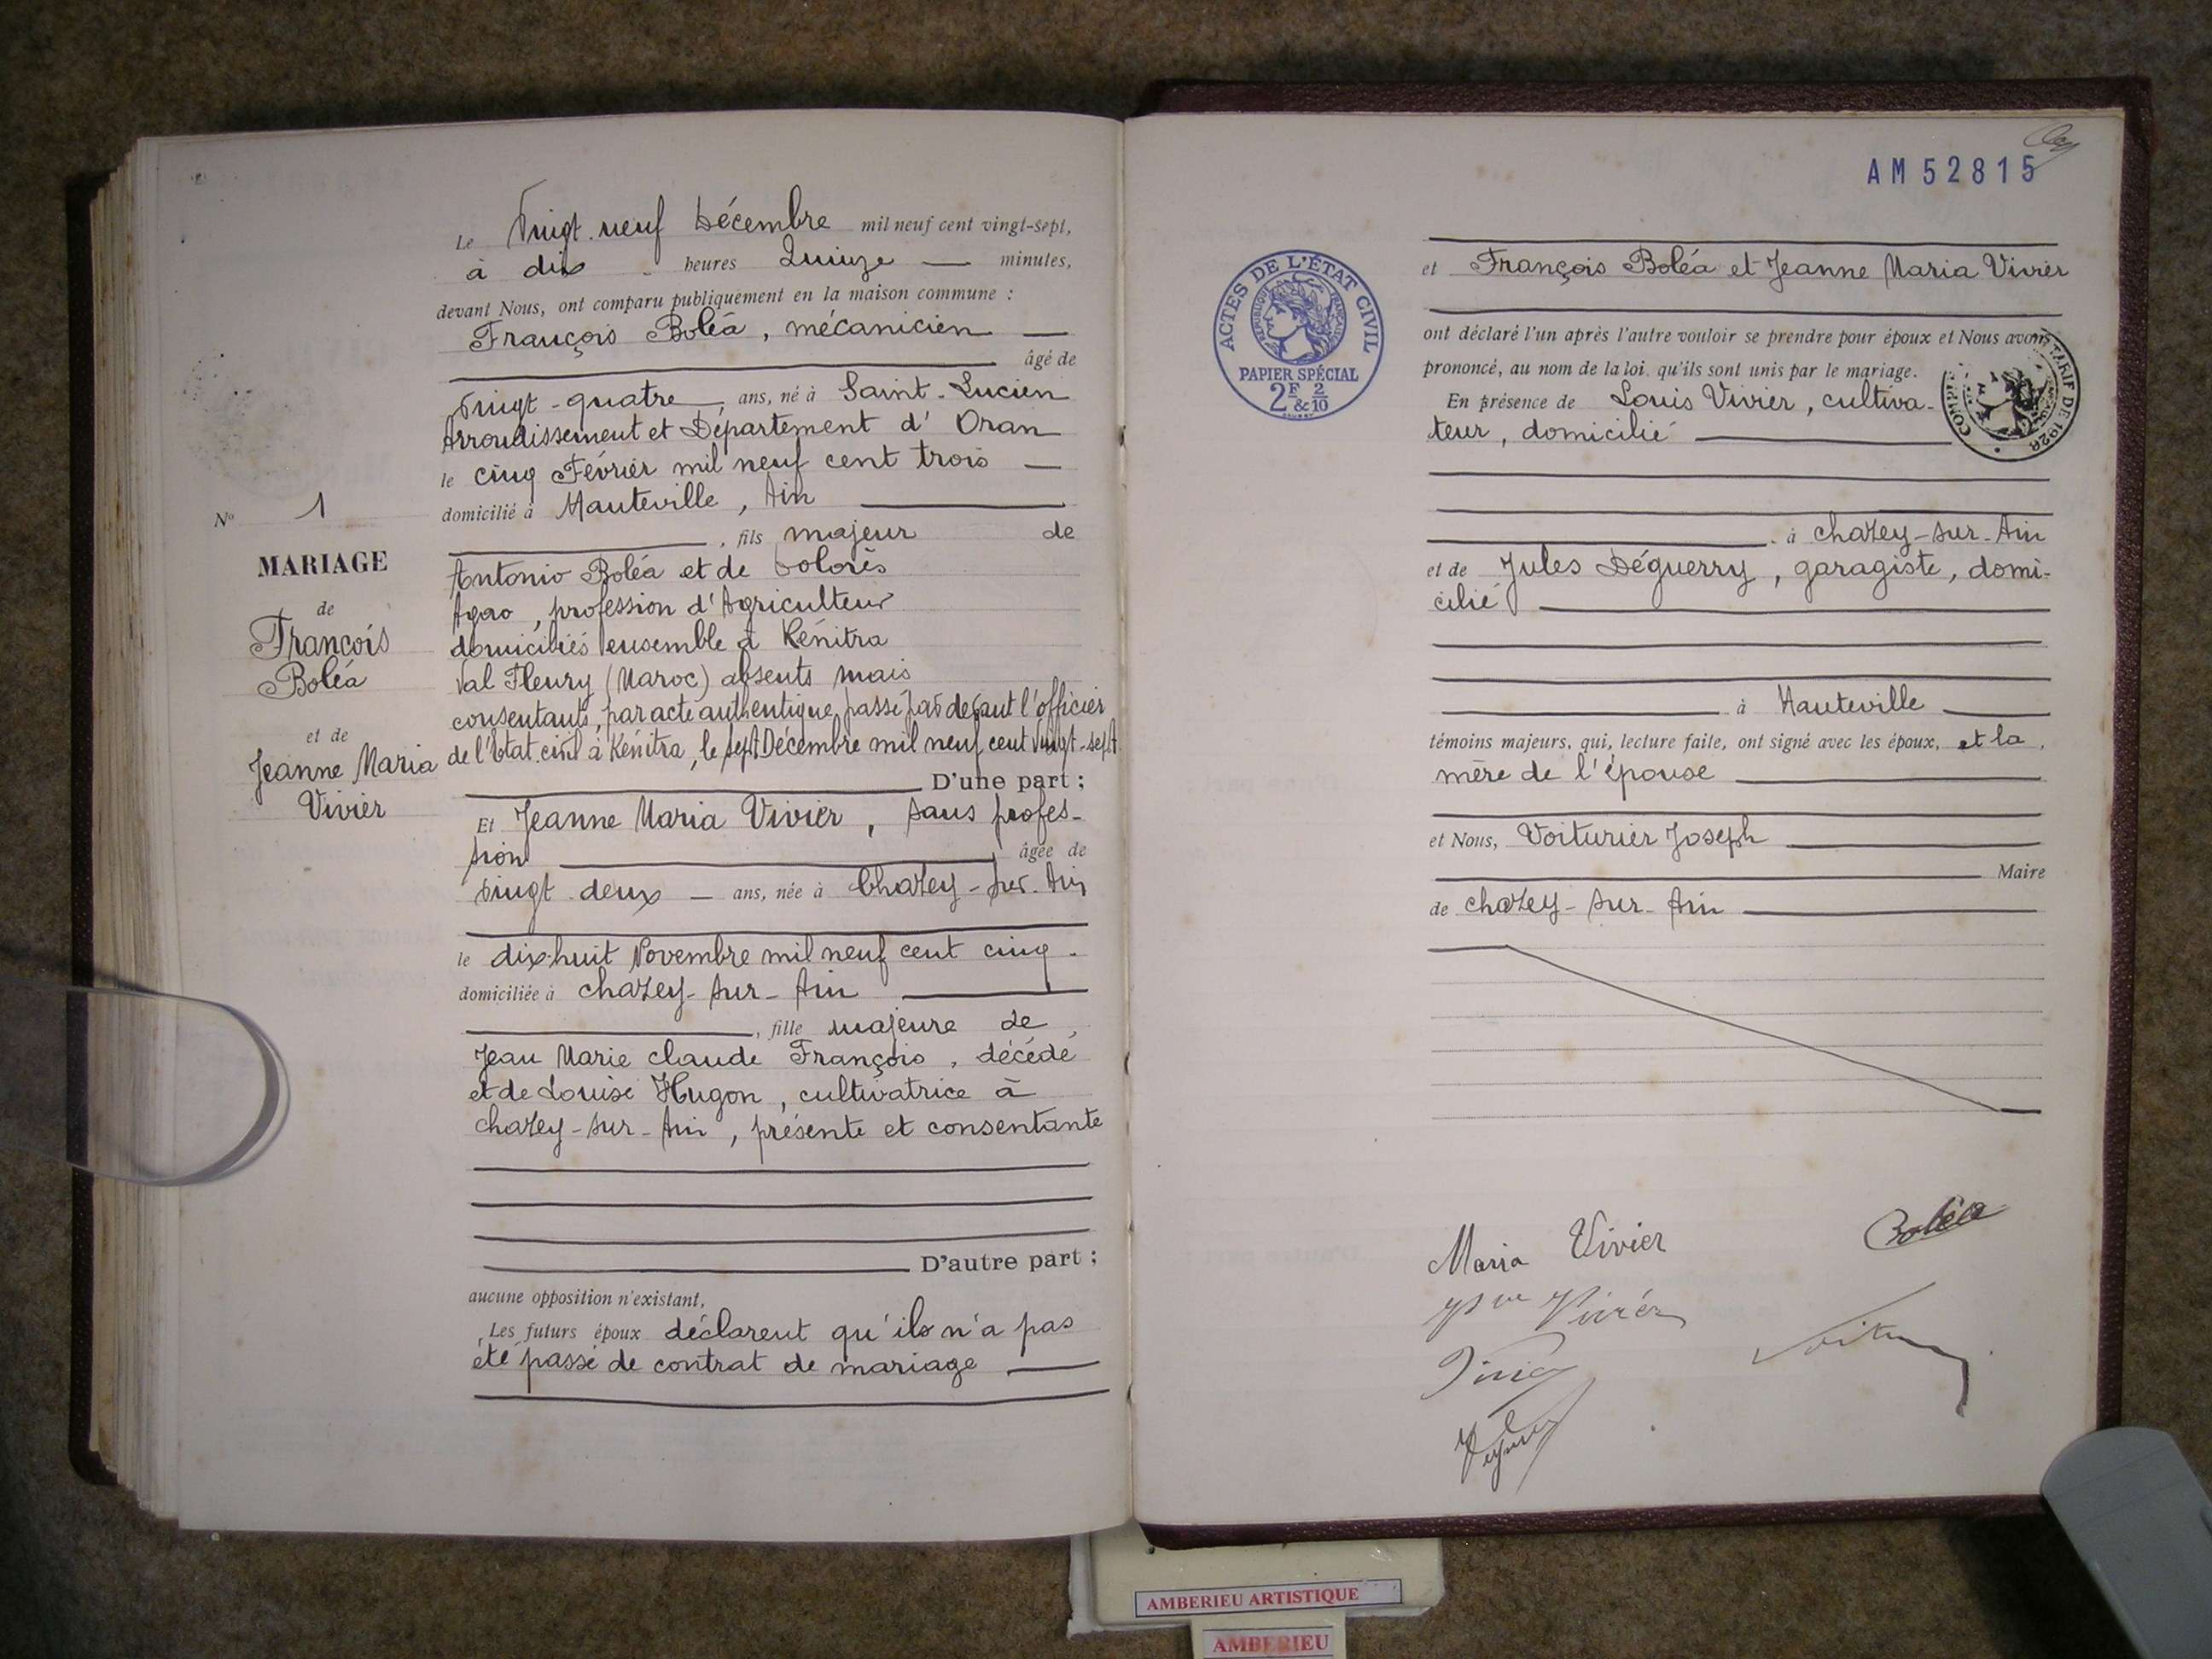 Le Vingt neuf Décembre mil neuf cent vingt-sept,
à dix heures Quinze minutes,
devant Nous, ont comparu publiquement en la maison commune :
François Boléa, mécanicien
âgé de
Vingt-quatre ans, né à Saint-Lucien
Arrondissement et Département d'Oran
le cinq Février mil neuf cent trois
domicilié à Hauteville, Ain
, fils majeur de
Antonio Boléa et de Dolorès
Agao, profession d'Agriculteur
domiciliés ensemble à Kénitra
Val Fleury (Maroc) absents mais
consentants, par acte authentique, passé par devant l'officier
de l'Etat-civil à Kénitra, le sept Décembre mil neuf cent vingt-sept
D'une part ;
Et Jeanne Maria Vivier, sans profes-
sion, âgée de
vingt deux ans, née à Chazey-sur-Ain
le dix-huit Novembre mil neuf cent cinq.
domiciliée à chazey-sur-Ain
, fille majeure de
Jean Marie claude François, décédé
et de Louise Hugon, cultivatrice à
chazey-sur-Ain, présente et consentante
D'autre part ;
aucune opposition n'existant,
Les futurs époux déclarent qu'ils n'a pas
été passé de contrat de mariage
No 1
MARIAGE
de
François
Boléa
et de
Jeanne Maria
Vivier
AM 52815
ACTES DE L'ÉTAT CIVIL
RÉPUBLIQUE FRANÇAISE
PAPIER SPÉCIAL
2F & 2/10
et François Boléa et Jeanne Maria Vivier
ont déclaré l'un après l'autre vouloir se prendre pour époux et Nous avons
prononcé, au nom de la loi, qu'ils sont unis par le mariage.
TARIF DE 1926
En présence de Louis Vivier, cultiva-
teur, domicilié
à chazey-sur-Ain
et de Jules Déguerry, garagiste, domi-
cilié
à Hauteville
témoins majeurs, qui, lecture faite, ont signé avec les époux, et la
mère de l'épouse
et Nous, Voiturier Joseph
Maire
de chazey-sur-Ain
Maria Vivier
Boléa
Vivier
AMBERIEU ARTISTIQUE
AMBERIEU